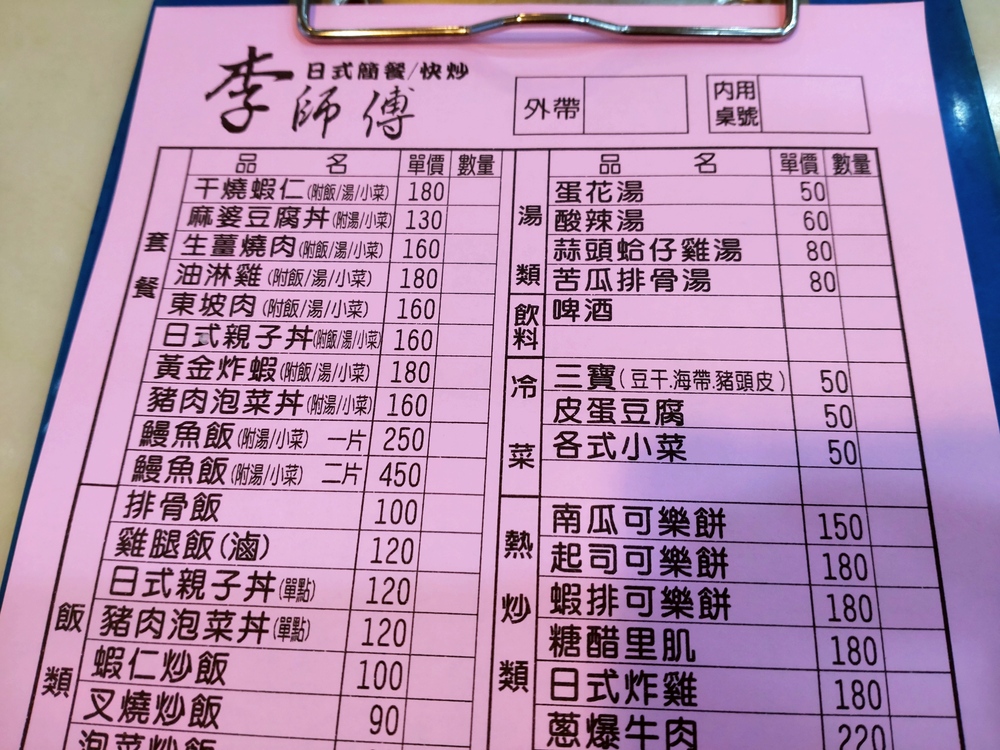 李師傅
日式簡餐/快炒
外帶
內用
桌號
品 名 單價 數量
套餐
干燒蝦仁(附飯/湯/小菜) 180
麻婆豆腐丼(附湯/小菜) 130
生薑燒肉(附飯/湯/小菜) 160
油淋雞(附飯/湯/小菜) 180
東坡肉(附飯/湯/小菜) 160
日式親子丼(附飯/湯/小菜) 160
黃金炸蝦(附飯/湯/小菜) 180
豬肉泡菜丼(附湯/小菜) 160
鰻魚飯(附湯/小菜) 一片 250
鰻魚飯(附湯/小菜) 二片 450
飯類
排骨飯 100
雞腿飯(滷) 120
日式親子丼(單點) 120
豬肉泡菜丼(單點) 120
蝦仁炒飯 100
叉燒炒飯 90
泡菜炒飯
品 名 單價 數量
湯類
蛋花湯 50
酸辣湯 60
蒜頭蛤仔雞湯 80
苦瓜排骨湯 80
飲料
啤酒
冷菜
三寶(豆干.海帶.豬頭皮) 50
皮蛋豆腐 50
各式小菜 50
熱炒類
南瓜可樂餅 150
起司可樂餅 180
蝦排可樂餅 180
糖醋里肌 180
日式炸雞 180
蔥爆牛肉 220